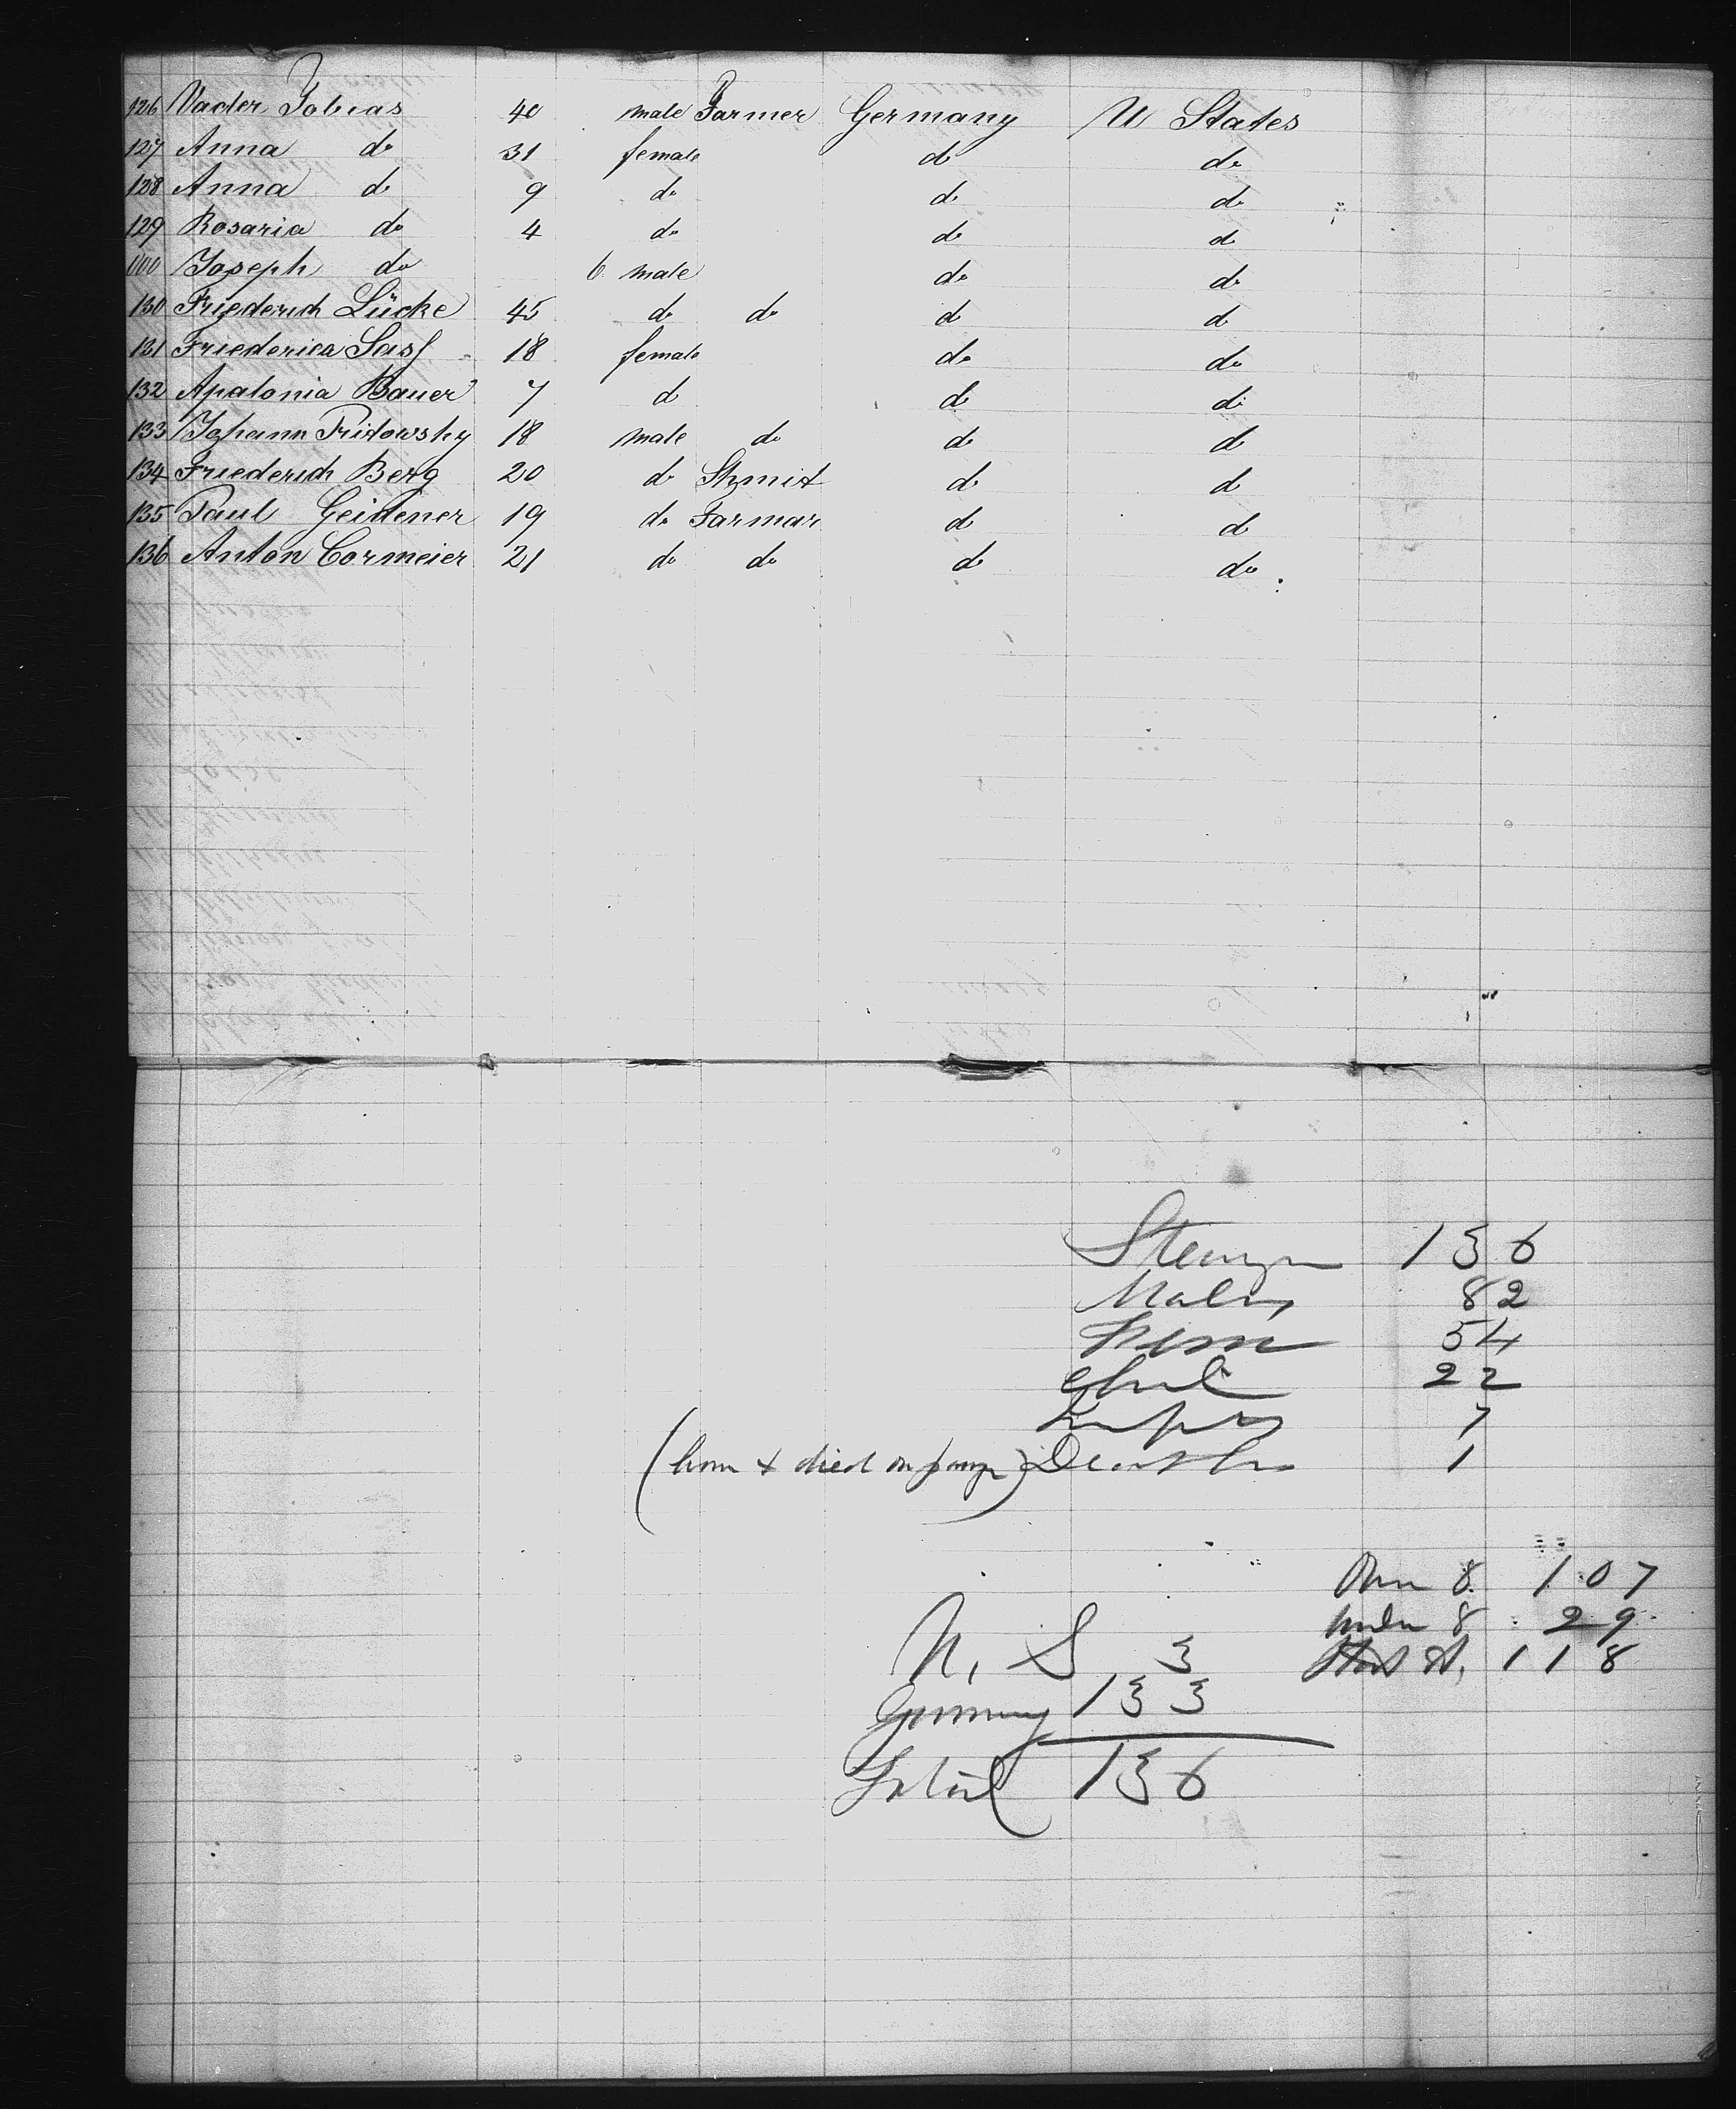 126 Vader Tobias 40 male Farmer Germany U States
127 Anna do 31 female do do
128 Anna do 9 do do do
129 Rosaria do 4 do do do
000 Joseph do 6 male do do
130 Friederich Lücke 45 do do do do
131 Friederica Sass 18 female do do
132 Apalonia Bauer 7 do do do
133 Johann Pridowsky 18 male do do do
134 Friederich Berg 20 do Shmit do do
135 Paul Geidener 19 do Farmar do do
136 Anton Cormeier 21 do do do do
136
Males 82
Fem 54
Chil 22
7
(born & died on passage) Deaths 1
Over 8 107
under 8 29
118
U. S 3
Germany 133
Total 136